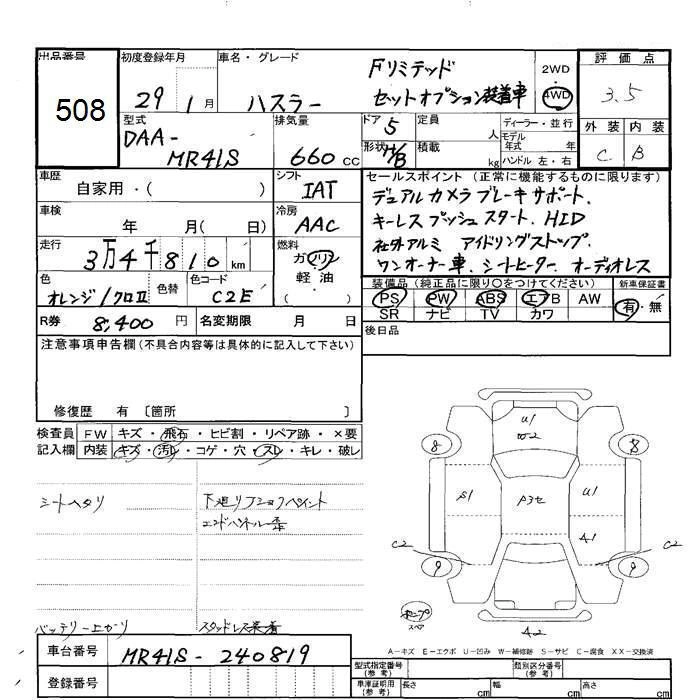 出品番号
508
初度登録年月
29年 1月
車名・グレード
ハスラー
Fリミテッド
セットオプション装着車
2WD
4WD
評価点
3.5
外装 内装
C B
型式
DAA-
MR41S
排気量
660 cc
ドア 5
形状 H/B
定員 人
積載 kg
ディーラー・並行
モデル年式 年
ハンドル 左・右
車歴 自家用・( )
シフト
IAT
車検 年 月( 日)
冷房
AAC
走行
3万4千810 km
燃料
ガソリン
軽油
色
オレンジ/クロⅡ
色替
色コード
C2E
R券 8,400 円
名変期限 月 日
セールスポイント (正常に機能するものに限ります)
デュアルカメラブレーキサポート.
キーレスプッシュスタート. HID
社外アルミ アイドリングストップ.
ワンオーナー車. シートヒーター. オーディオレス
装備品(純正品に限り○をつけてください)
新車保証書
PS PW ABS エアB AW
有・無
SR ナビ TV カワ
後日品
注意事項申告欄(不具合内容等は具体的に記入して下さい)
修復歴 有 〔箇所 〕
検査員記入欄
FW キズ・飛石・ヒビ割・リペア跡・×要
内装 キズ・汚レ・コゲ・穴・スレ・キレ・破レ
シートヘタリ
エンドパネル
バッテリー上がり
スタッドレス装着
U1
W2
8 8
S1
P3セ
U1
A1
C2
C2
9 9
スペア
A2
A-キズ E-エクボ U-凹み W-補修跡 S-サビ C-腐食 XX-交換済
車台番号
MR41S-240819
登録番号
型式指定番号(参考)
類別区分番号(参考)
車庫証明用(参考)
長さ cm
幅 cm
高さ cm